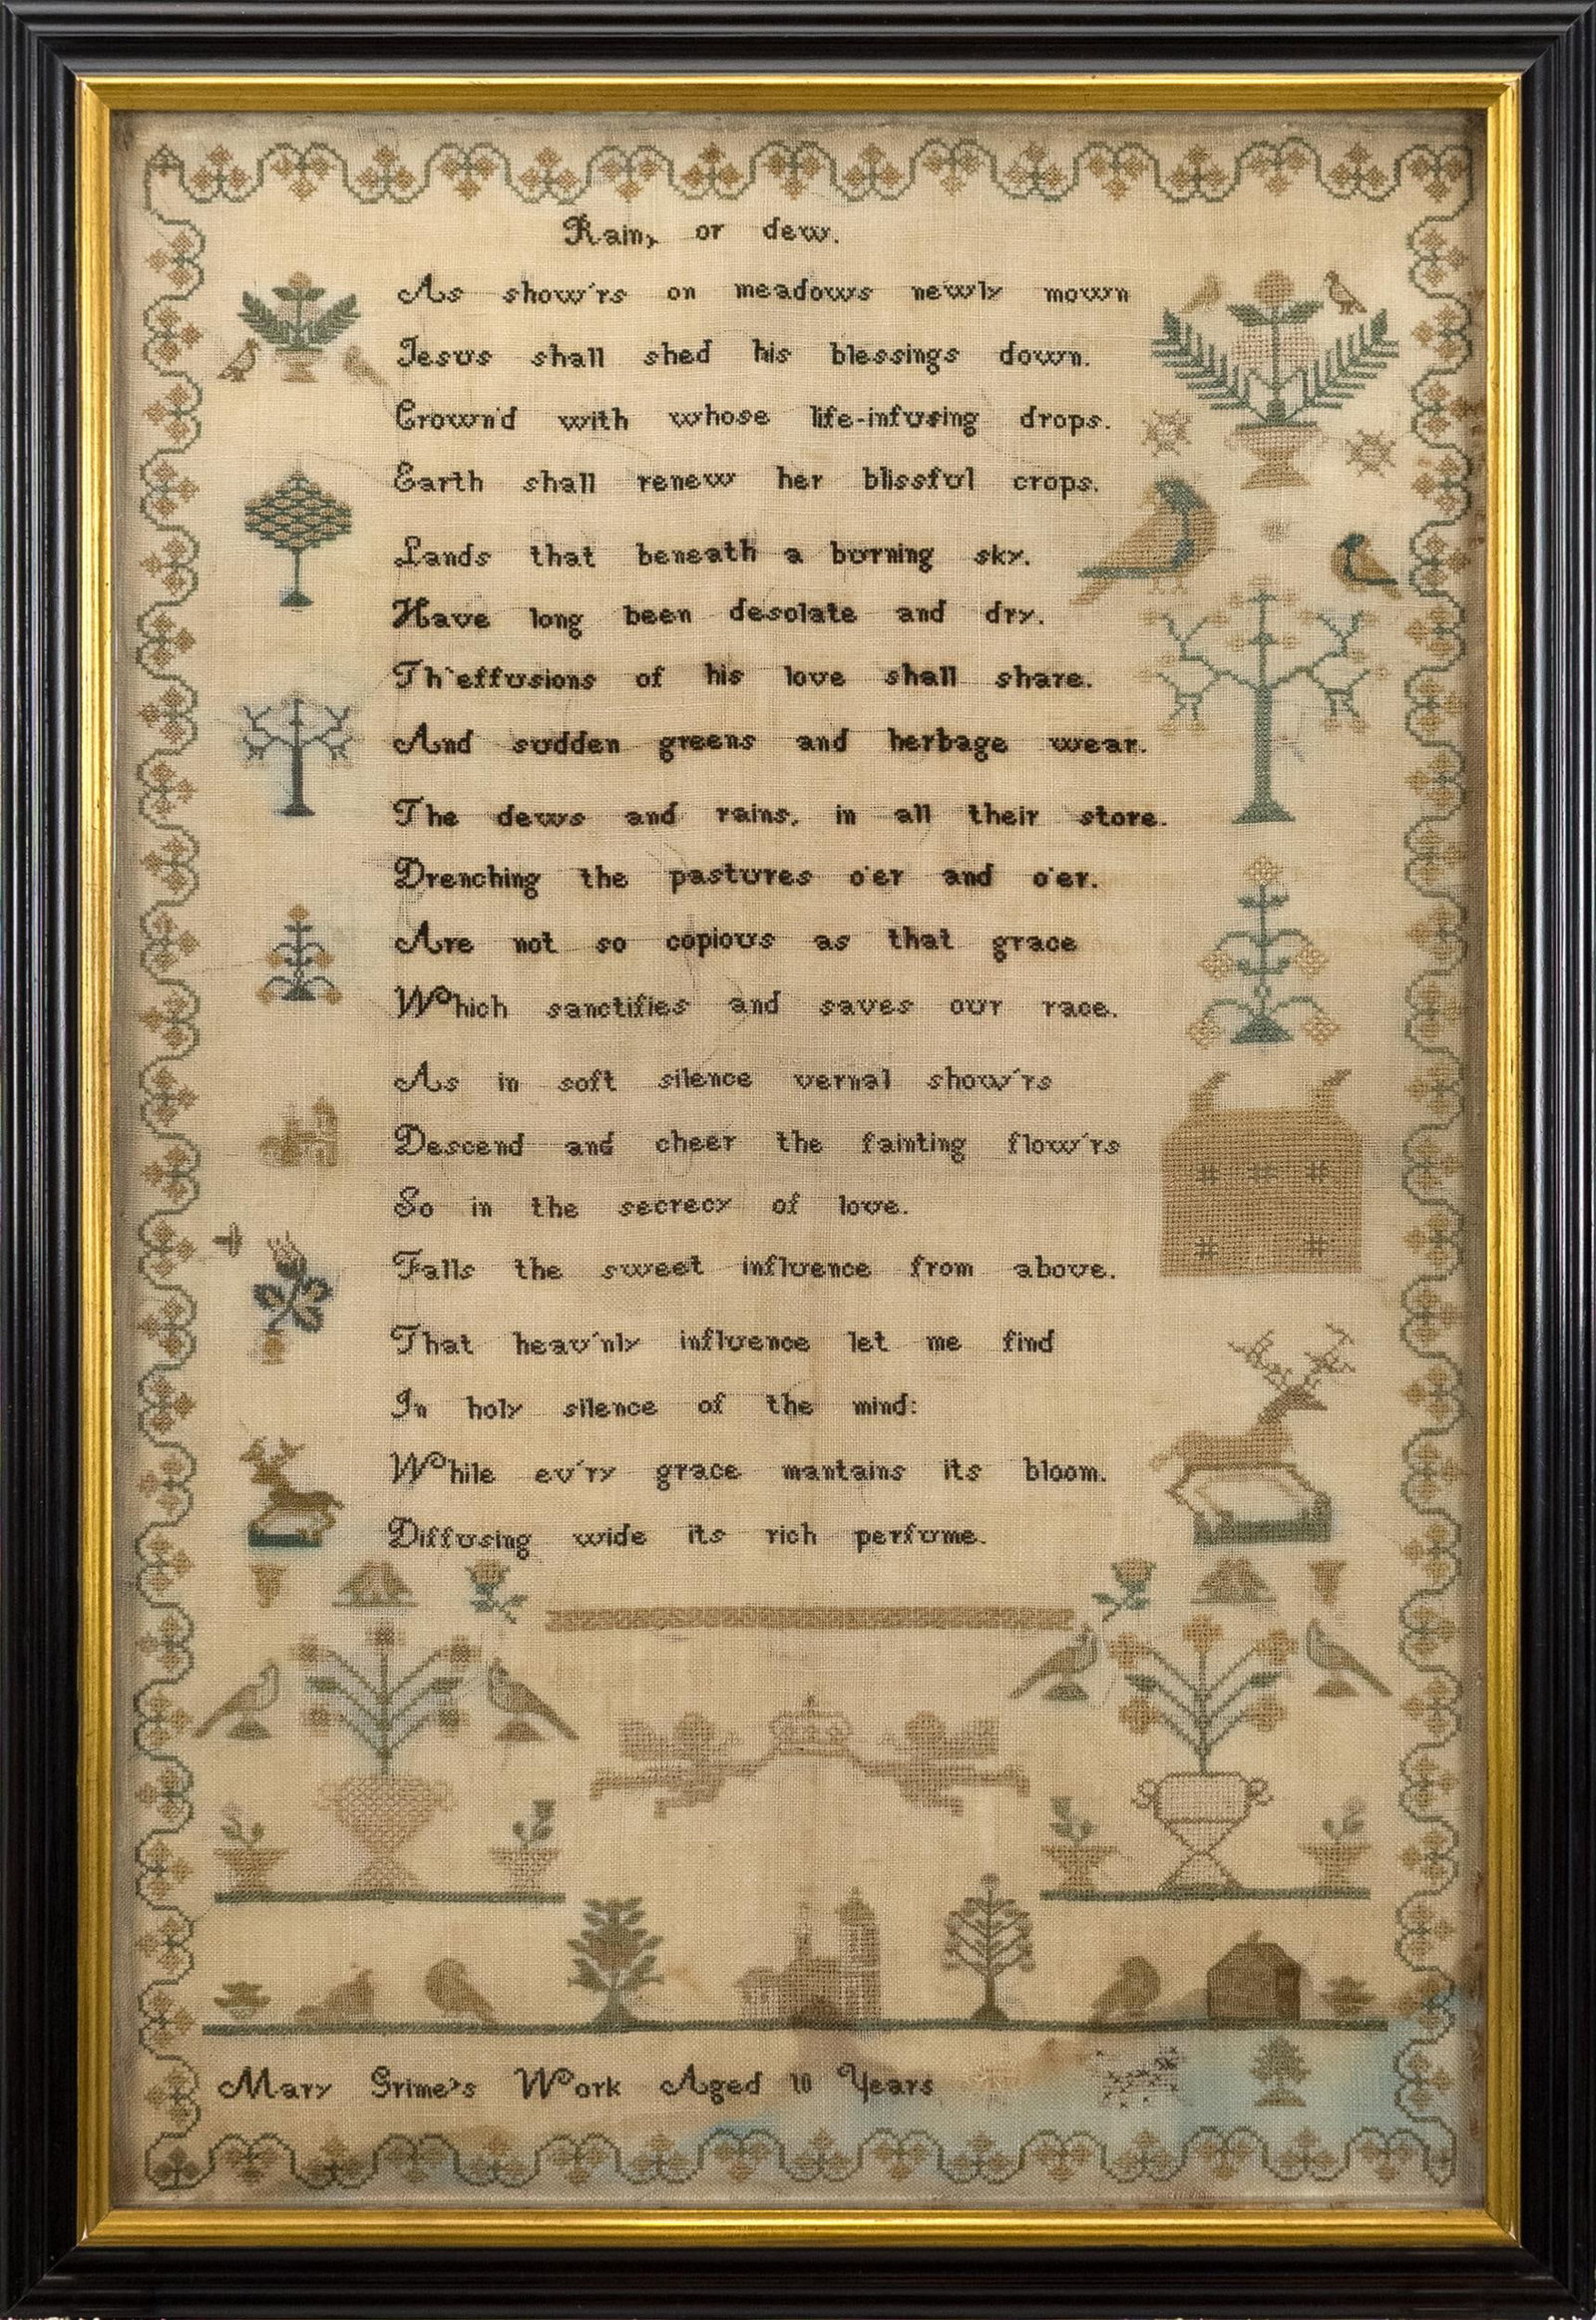 Rain, or dew.
As show'rs on meadows newly mown
Jesus shall shed his blessings down.
Crown'd with whose life-infusing drops.
Earth shall renew her blissful crops.
Lands that beneath a burning sky.
Have long been desolate and dry.
Th'effusions of his love shall share.
And sudden greens and herbage wear.
The dews and rains, in all their store.
Drenching the pastures o'er and o'er.
Are not so copious as that grace
Which sanctifies and saves our race.
As in soft silence vernal show'rs
Descend and cheer the fainting flow'rs
So in the secrecy of love.
Falls the sweet influence from above.
That heav'nly influence let me find
In holy silence of the mind:
While ev'ry grace mantains its bloom.
Diffusing wide its rich perfume.
Mary Grime's Work Aged 10 Years